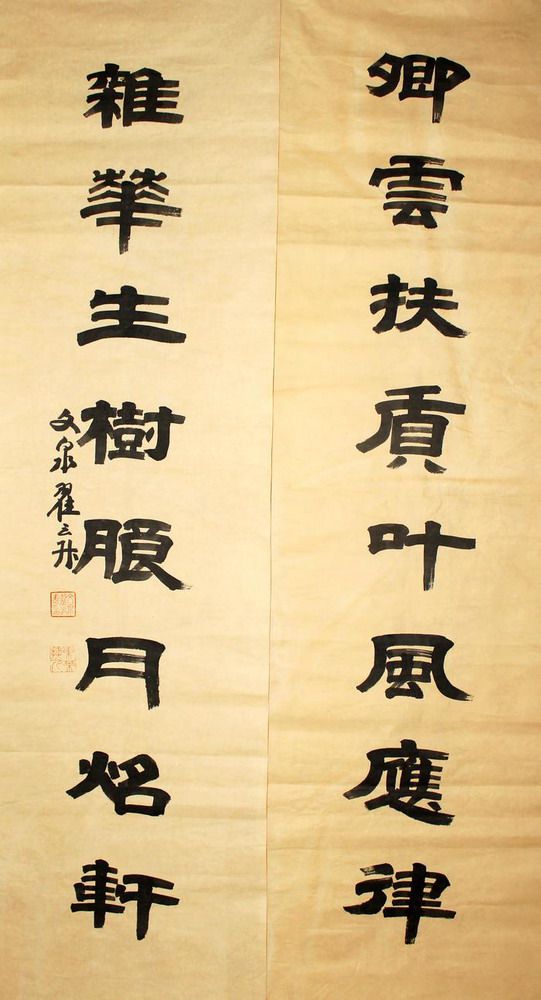 卿雲扶貭叶風應律
雜華生樹朖月炤軒
文泉翟云升